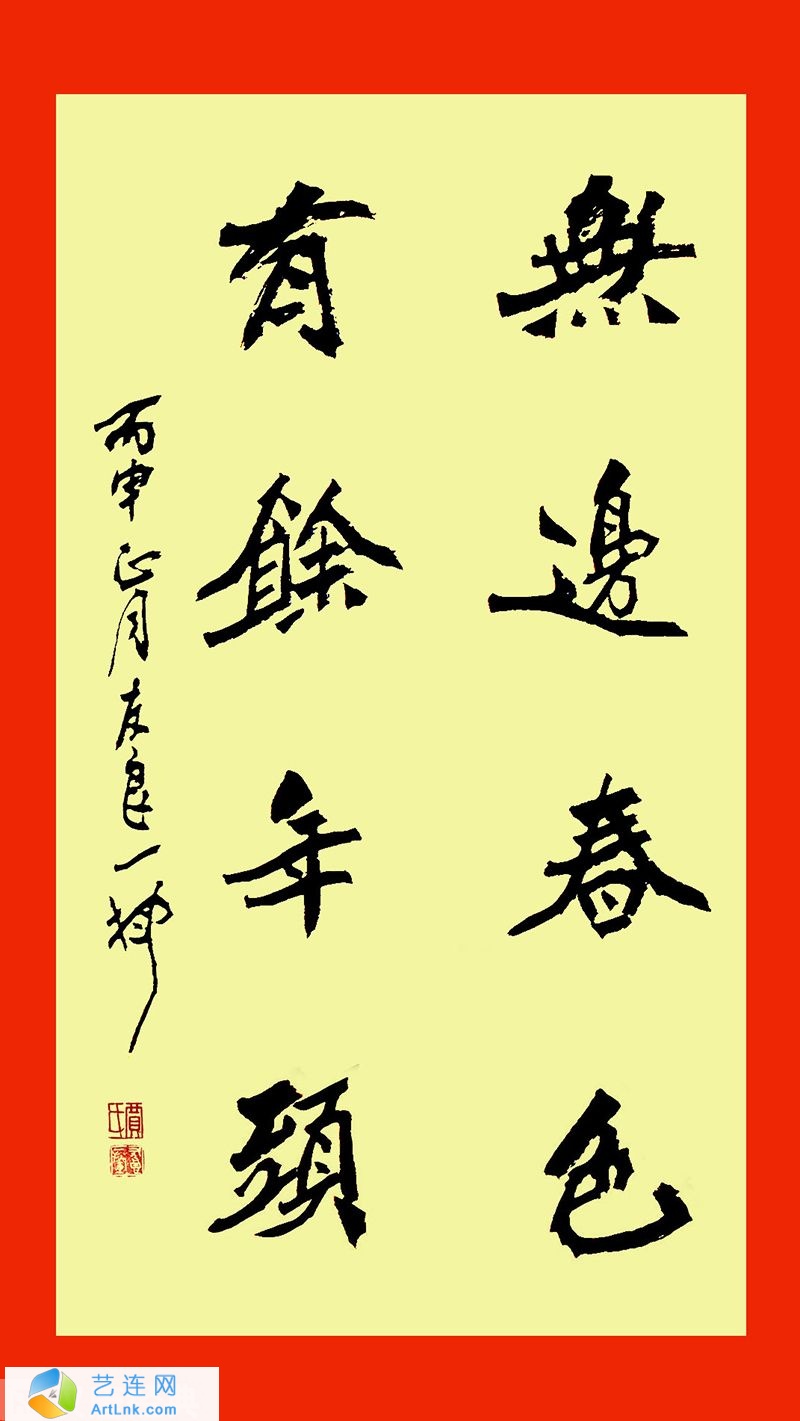 無邊春色
有餘年頭
丙申正月友良一挥
賈氏
艺连网
ArtLnk.com